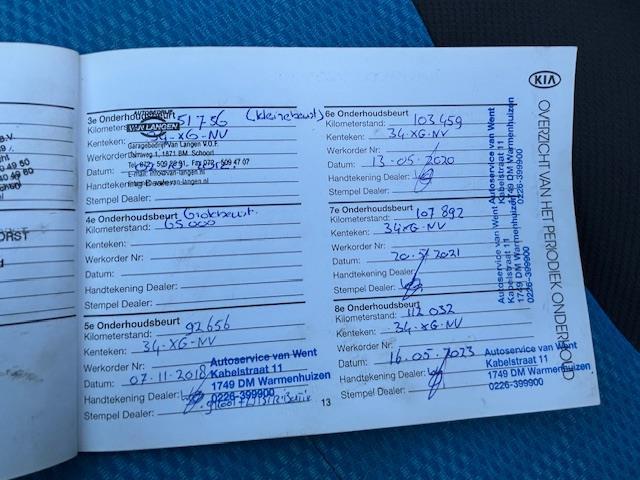 KIA
OVERZICHT VAN HET PERIODIEK ONDERHOUD
3e Onderhoudsbeurt (kleine beurt)
Kilometerstand: 51756
Kenteken: 34-XG-NV
Werkorder Nr:
Datum:
Handtekening Dealer:
Stempel Dealer:
AUTOBEDRIJF
VAN LANGEN
Garagebedrijf Van Langen V.O.F.
1871 BM Schoorl
4e Onderhoudsbeurt Grote beurt.
Kilometerstand: 65000
Kenteken:
Werkorder Nr:
Datum:
Handtekening Dealer:
Stempel Dealer:
5e Onderhoudsbeurt
Kilometerstand: 92656
Kenteken: 34-XG-NV
Werkorder Nr:
Datum: 07-11-2018
Handtekening Dealer:
Stempel Dealer:
Autoservice van Went
Kabelstraat 11
1749 DM Warmenhuizen
0226-399900
6e Onderhoudsbeurt
Kilometerstand: 103459
Kenteken: 34-XG-NV
Werkorder Nr:
Datum: 13-05-2020
Handtekening Dealer:
Stempel Dealer:
Autoservice van Went
Kabelstraat 11
1749 DM Warmenhuizen
0226-399900
7e Onderhoudsbeurt
Kilometerstand: 107892
Kenteken: 34-XG-NV
Werkorder Nr:
Datum: 20-5-2021
Handtekening Dealer:
Stempel Dealer:
Autoservice van Went
Kabelstraat 11
1749 DM Warmenhuizen
0226-399900
8e Onderhoudsbeurt
Kilometerstand: 112032
Kenteken: 34-XG-NV
Werkorder Nr:
Datum: 16-05-2023
Handtekening Dealer:
Stempel Dealer:
Autoservice van Went
Kabelstraat 11
1749 DM Warmenhuizen
0226-399900
13